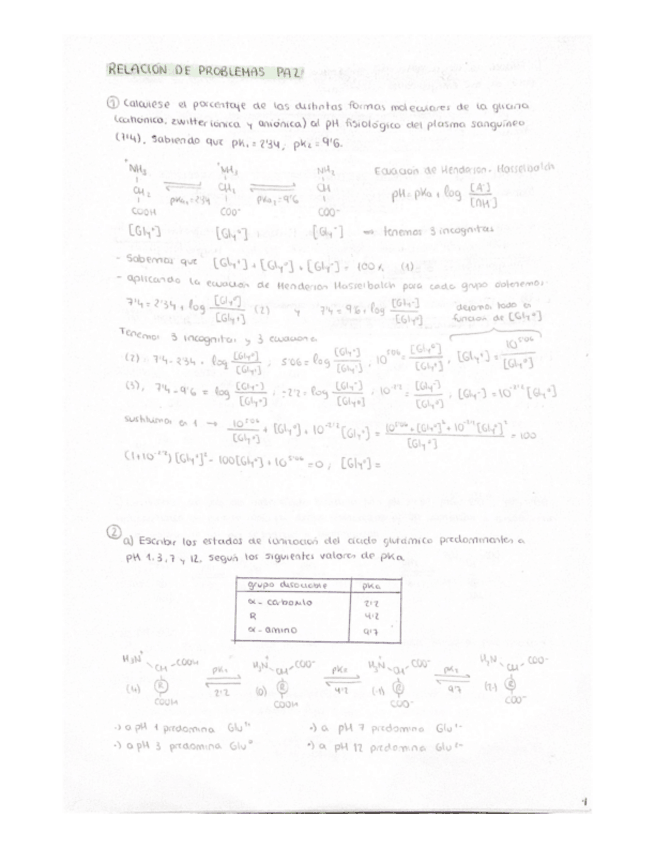 RELACIÓN DE PROBLEMAS PAZ
① Calcúlese el porcentaje de las distintas formas moleculares de la glicina
(catiónica, zwitteriónica y aniónica) al pH fisiológico del plasma sanguíneo
(7'4), sabiendo que pK₁ = 2'34, pK₂ = 9'6.
⁺NH₃ ⁺NH₃ NH₂ Ecuación de Henderson-Hasselbalch
CH₂ CH₂ CH pH = pKa + log [A⁻]/[AH]
pKa₁=2'34 pKa₂=9'6
COOH COO⁻ COO⁻
[Gly⁺] [Gly⁰] [Gly⁻] ⇒ tenemos 3 incógnitas
- Sabemos que [Gly⁺] + [Gly⁰] + [Gly⁻] = 100% (1)
- aplicando la ecuación de Henderson Hasselbalch para cada grupo obtenemos:
7'4 = 2'34 + log [Gly⁰]/[Gly⁺] (2) y 7'4 = 9'6 + log [Gly⁻]/[Gly⁰] dejamos todo en función de [Gly⁰]
Tenemos 3 incógnitas y 3 ecuaciones
(2) = 7'4 - 2'34 = log [Gly⁰]/[Gly⁺] ; 5'06 = log [Gly⁰]/[Gly⁺] ; 10^5'06 = [Gly⁰]/[Gly⁺] ; [Gly⁺] = 10^5'06/[Gly⁰]
(3) = 7'4 - 9'6 = log [Gly⁻]/[Gly⁰] ; -2'2 = log [Gly⁻]/[Gly⁰] ; 10^-2'2 = [Gly⁻]/[Gly⁰] ; [Gly⁻] = 10^-2'2 [Gly⁰]
sustituimos en 1 → 10^5'06/[Gly⁰] + [Gly⁰] + 10^-2'2 [Gly⁰] = 10^5'06 + [Gly⁰]² + 10^-2'2 [Gly⁰]²/[Gly⁰] = 100
(1+10^-2'2) [Gly⁰]² - 100[Gly⁰] + 10^5'06 = 0 ; [Gly⁰] =
② a) Escribir los estados de ionización del ácido glutámico predominantes a
pH 1, 3, 7 y 12, según los siguientes valores de pKa.
grupo disociable pKa
α-carboxilo 2'2
R 4'2
α-amino 9'7
H₃N⁺ CH COOH pK₁ H₃N⁺ CH COO⁻ pK₂ H₃N⁺ CH COO⁻ pK₃ H₂N CH COO⁻
R 2'2 (0) R 4'2 (-1) R 9'7 (2-) R
COOH COOH COO⁻ COO⁻
·) a pH 1 predomina Glu¹⁺ ·) a pH 7 predomina Glu¹⁻
·) a pH 3 predomina Glu⁰ ·) a pH 12 predomina Glu²⁻
1